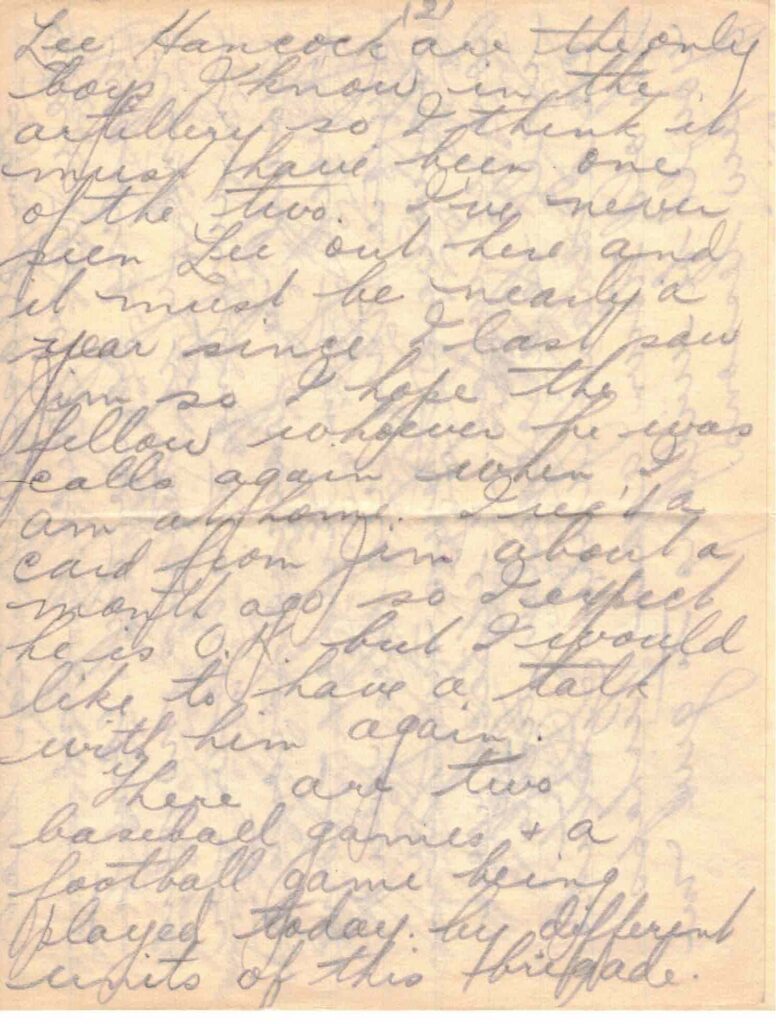 (2)
Lee Hancock are the only
boys I know in the
artillery so I think it
must have been one
of the two. I've never
seen Lee out here and
it must be nearly a
year since I last saw
Jim so I hope the
fellow whoever he was
calls again when I
am at home. I rec'd a
card from Jim about a
month ago so I expect
he is O.K. but I would
like to have a talk
with him again.
There are two
baseball games + a
football game being
played today by different
units of this brigade.